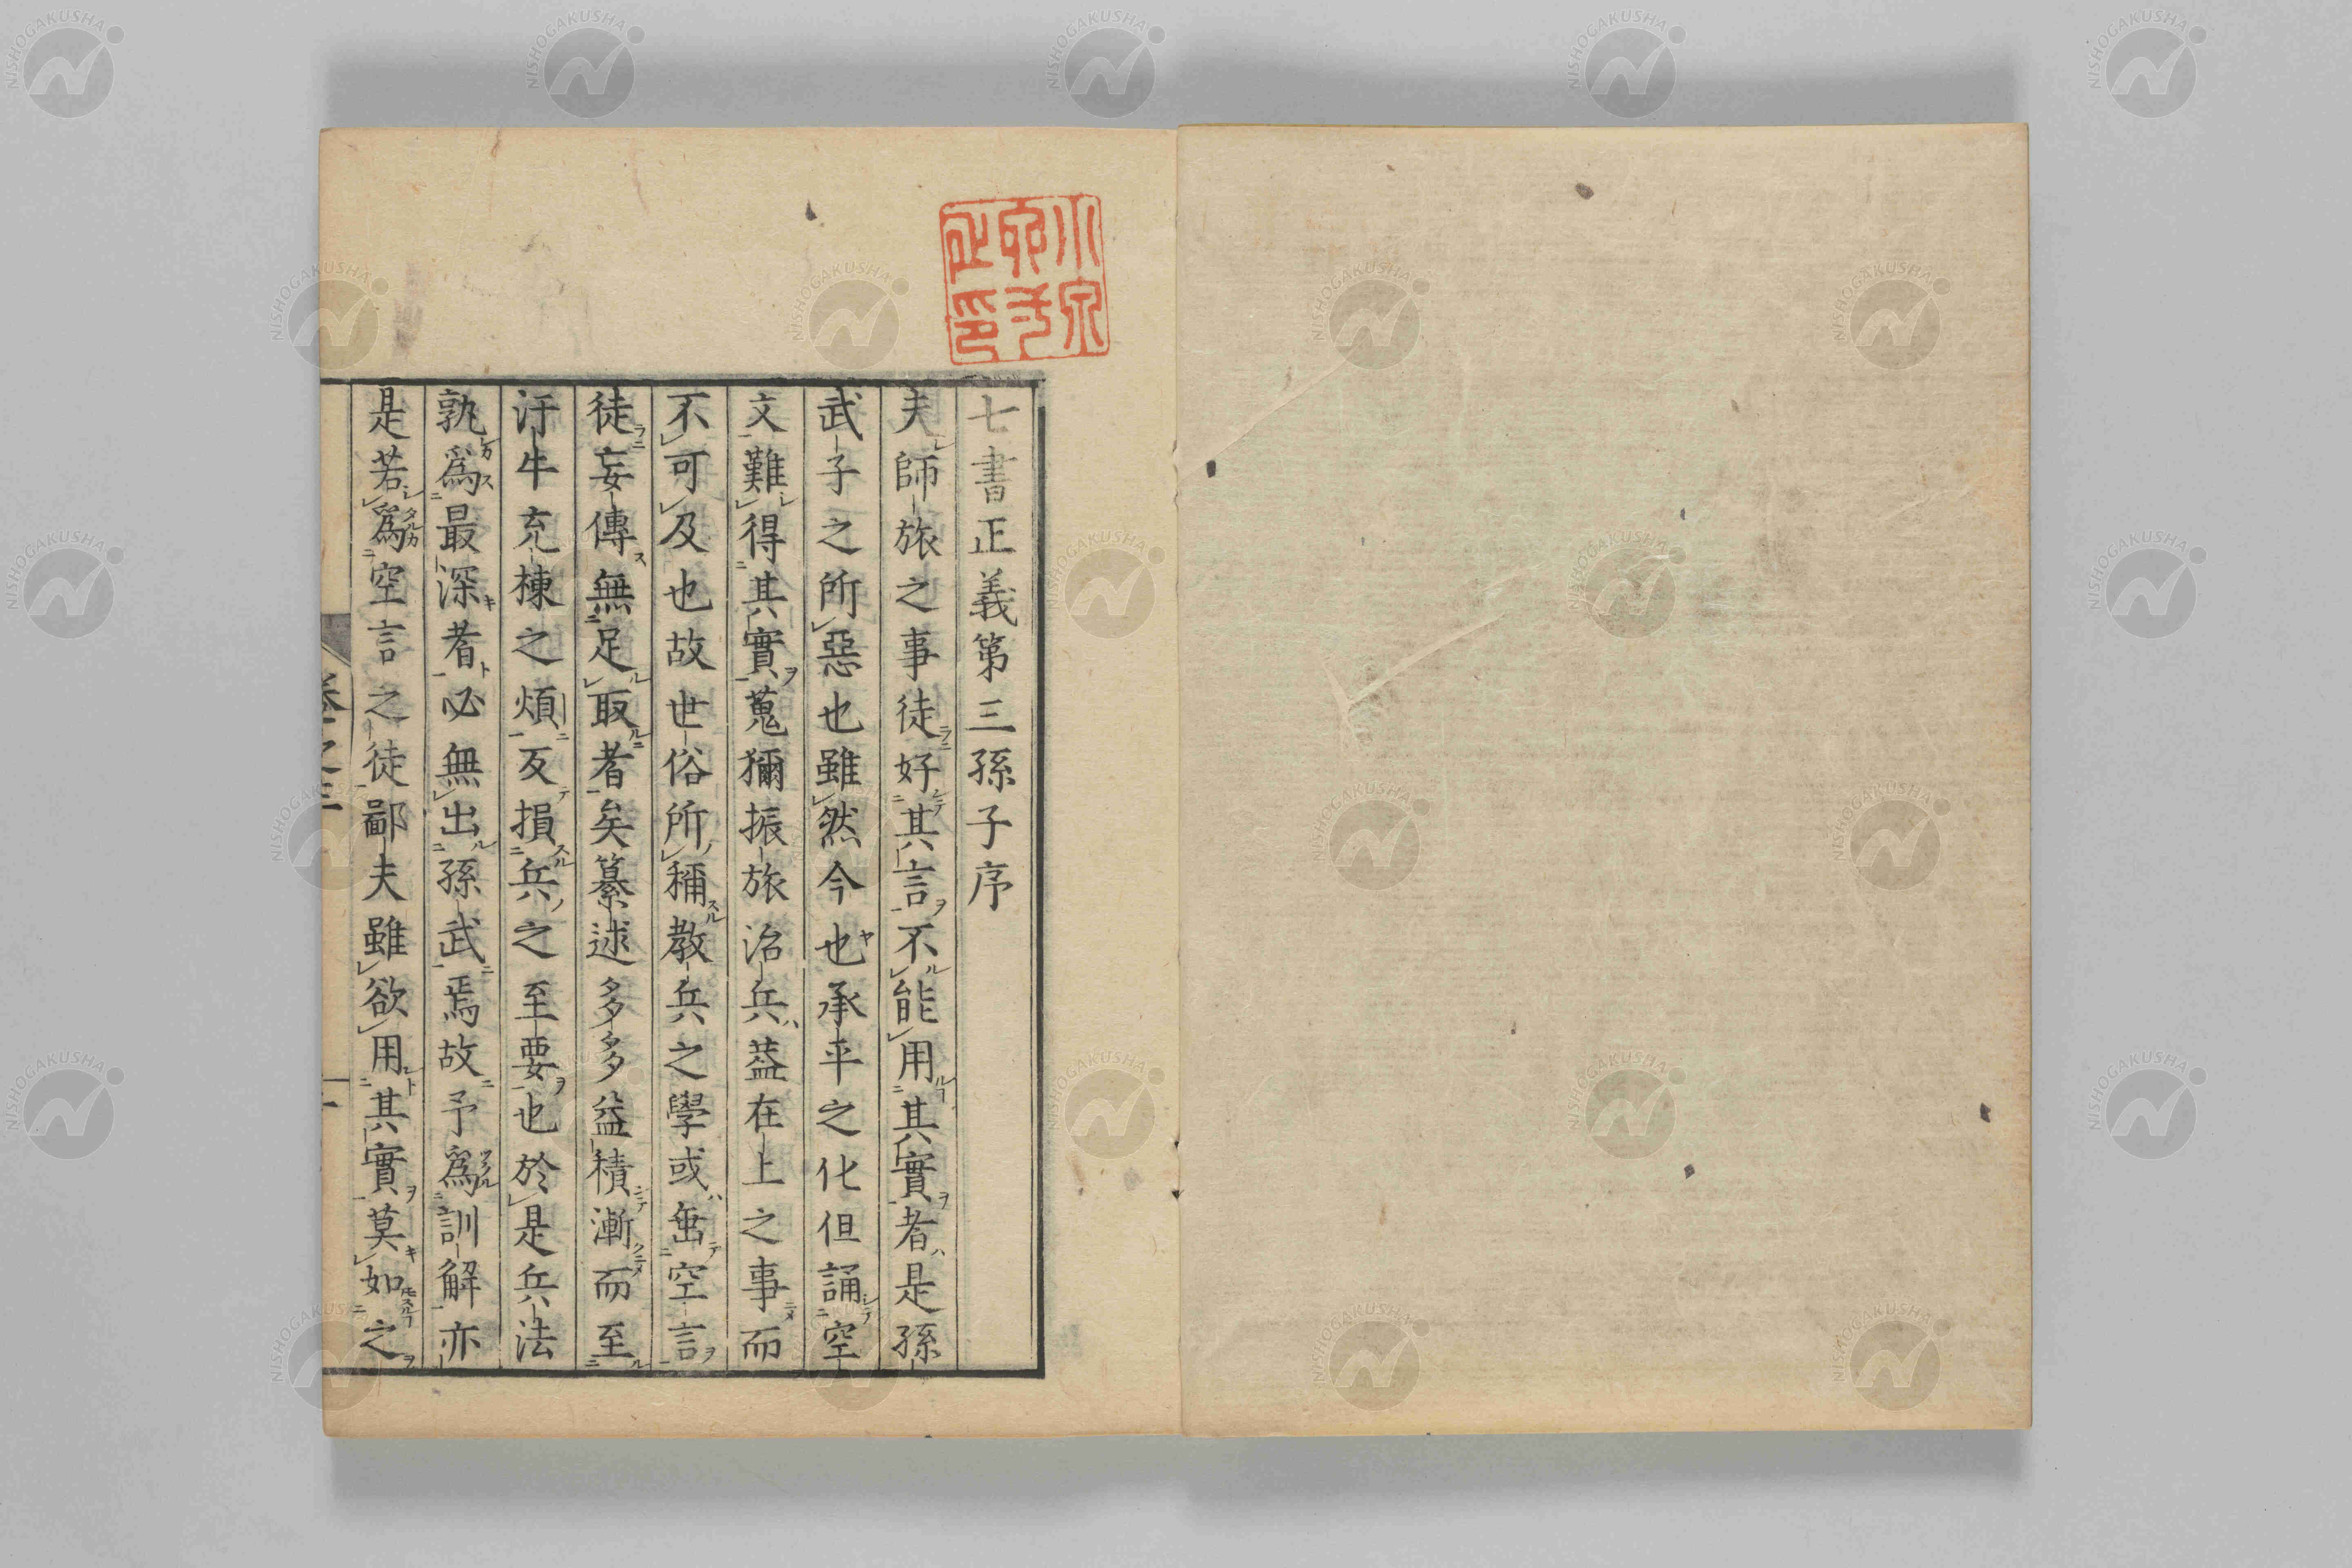 七書正義第三孫子序
夫師旅之事徒好其言不能用其實者是孫
武子之所惡也雖然今也承平之化但誦空
文難得其實蒐獮振旅治兵葢在上之事而
不可及也故世俗所稱教兵之學或舐空言
徒妄傳無足取者矣纂述多多益積漸而至
汗牛充棟之煩反損兵之至要也於是兵法
孰爲最深者必無出孫武焉故予爲訓解亦
是若爲空言之徒鄙夫雖欲用其實莫如之
卷之三
NISHOGAKUSHA